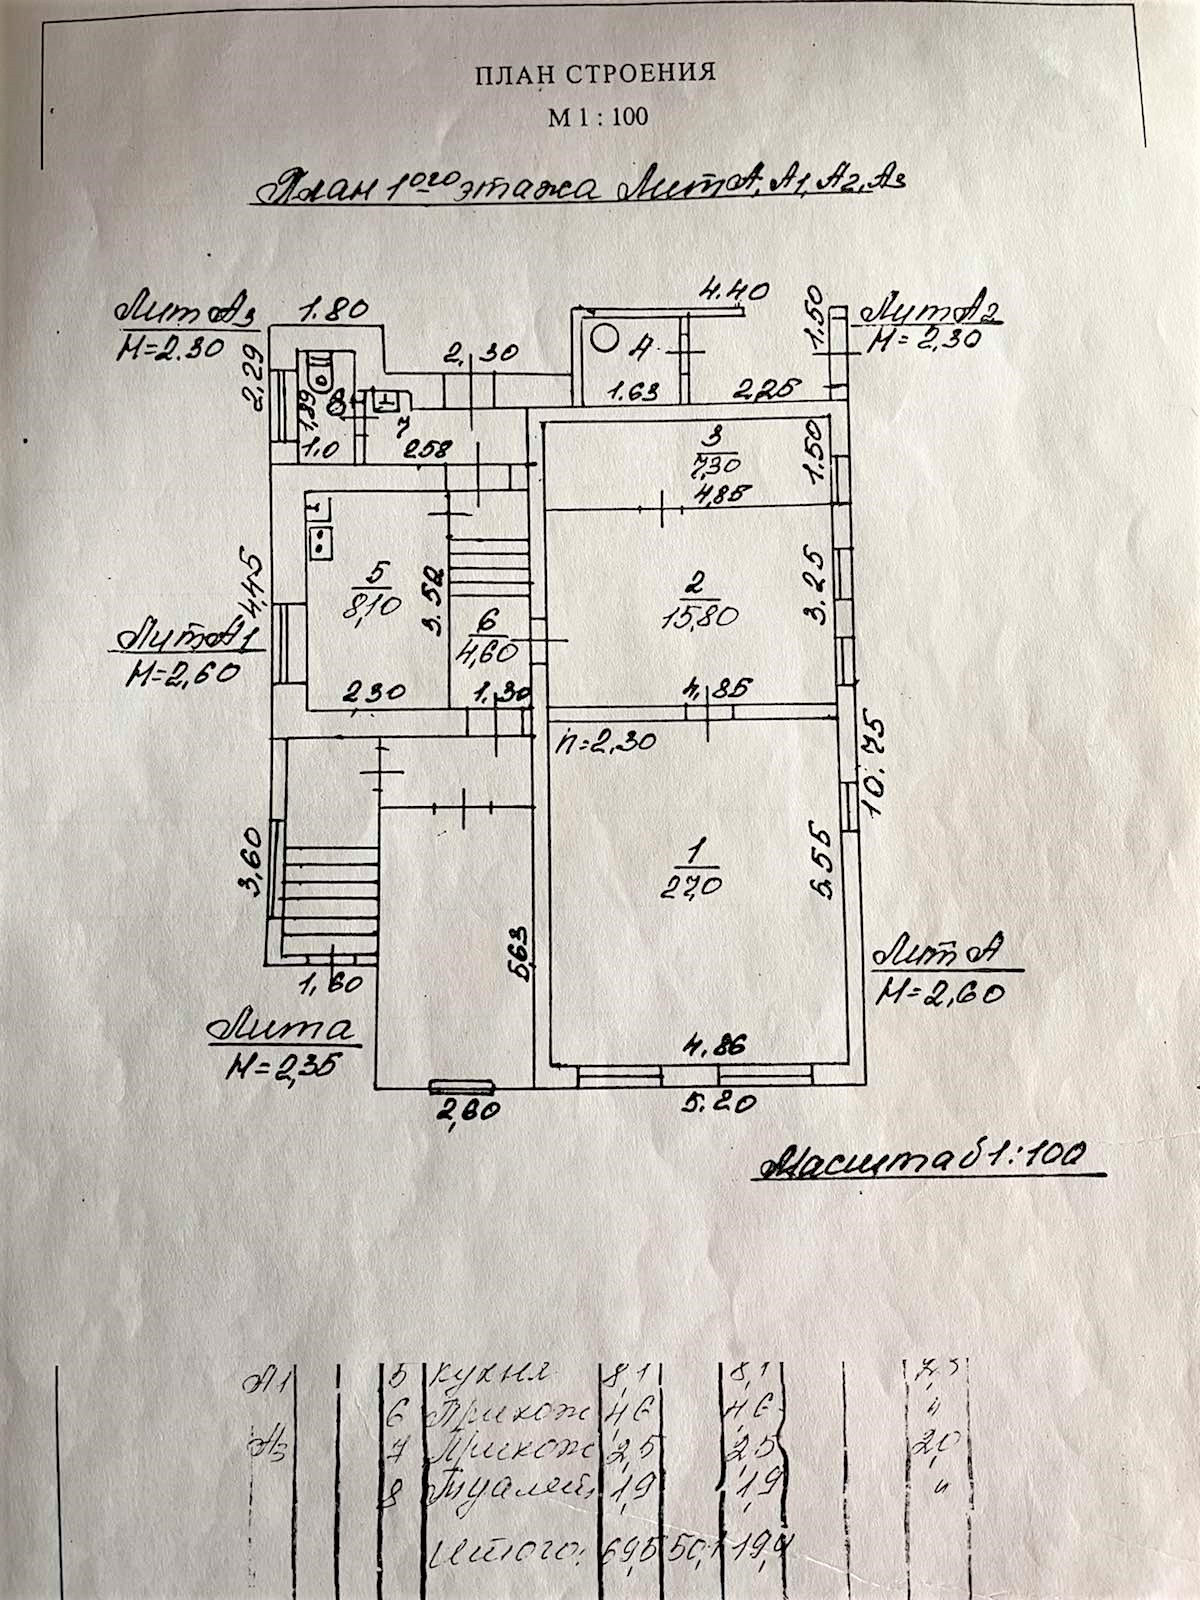 ПЛАН СТРОЕНИЯ
М 1 : 100
План 1ого этажа Лит А, А1, А2, А3
Лит А3
Н=2.30
1.80
2,30
4.40
1.50
Лит А2
Н=2,30
2,29
1,89
8
1,0
7
2.58
4
1.63
2,25
3
7,30
4,85
1.50
4,45
5
8,10
3.52
2.30
6
4,60
1,30
2
15,80
3.25
4,85
Лит А1
Н=2,60
h=2,30
10.75
3,60
1,60
5,63
1
27,0
5,55
Лит А
Н=2,60
Лит а
Н=2,35
4.86
2,60
5.20
Масштаб 1:100
А1 5 Кухня 8,1 8,1
6 Прихож 4,6 4,6 "
А3 7 Прихож 2,5 2,5 2,0
8 Туалет 1,9 1,9 "
Итого: 69,5 50,1 19,4